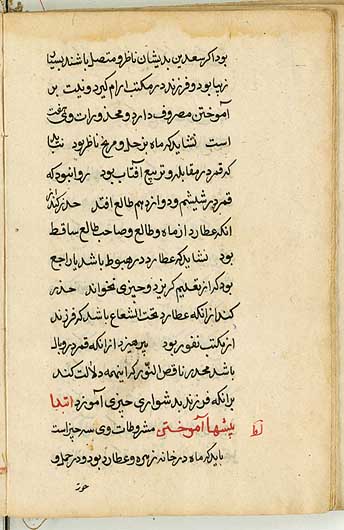 بود اکر سعدین بدیشان ناظر و متصل باشند بسیار
زیبا بود و فرزند در مکتب ارام کیرد و نیت بر
آموختن مصروف دارد و محذورات وی هفت
است نشاید که ماه بزحل و مریخ ناظر بود نباید
که قمر در مقابله و تربیع آفتاب بود روا نبود که
قمر در ششم و دوازدهم طالع افتد حذر کند از
انکه عطارد از ماه و طالع و صاحب طالع ساقط
بود نشاید که عطارد در هبوط باشد یا راجع
بود که از تعلیم کریزد و چیزی نخواند حذر
کند از انکه عطارد تحت الشعاع باشد که فرزند
از مکتب نفور بود بپرهیزد از انکه قمر در وبال
باشد یا قمر ناقص النور که اینهمه دلالت کند
بر انکه فرزند بدشواری چیزی آموزد ابتدا
پیشها آموختن مشروطات وی سه چیز است
باید که ماه در خانه زهره و عطارد بود و در حمل و